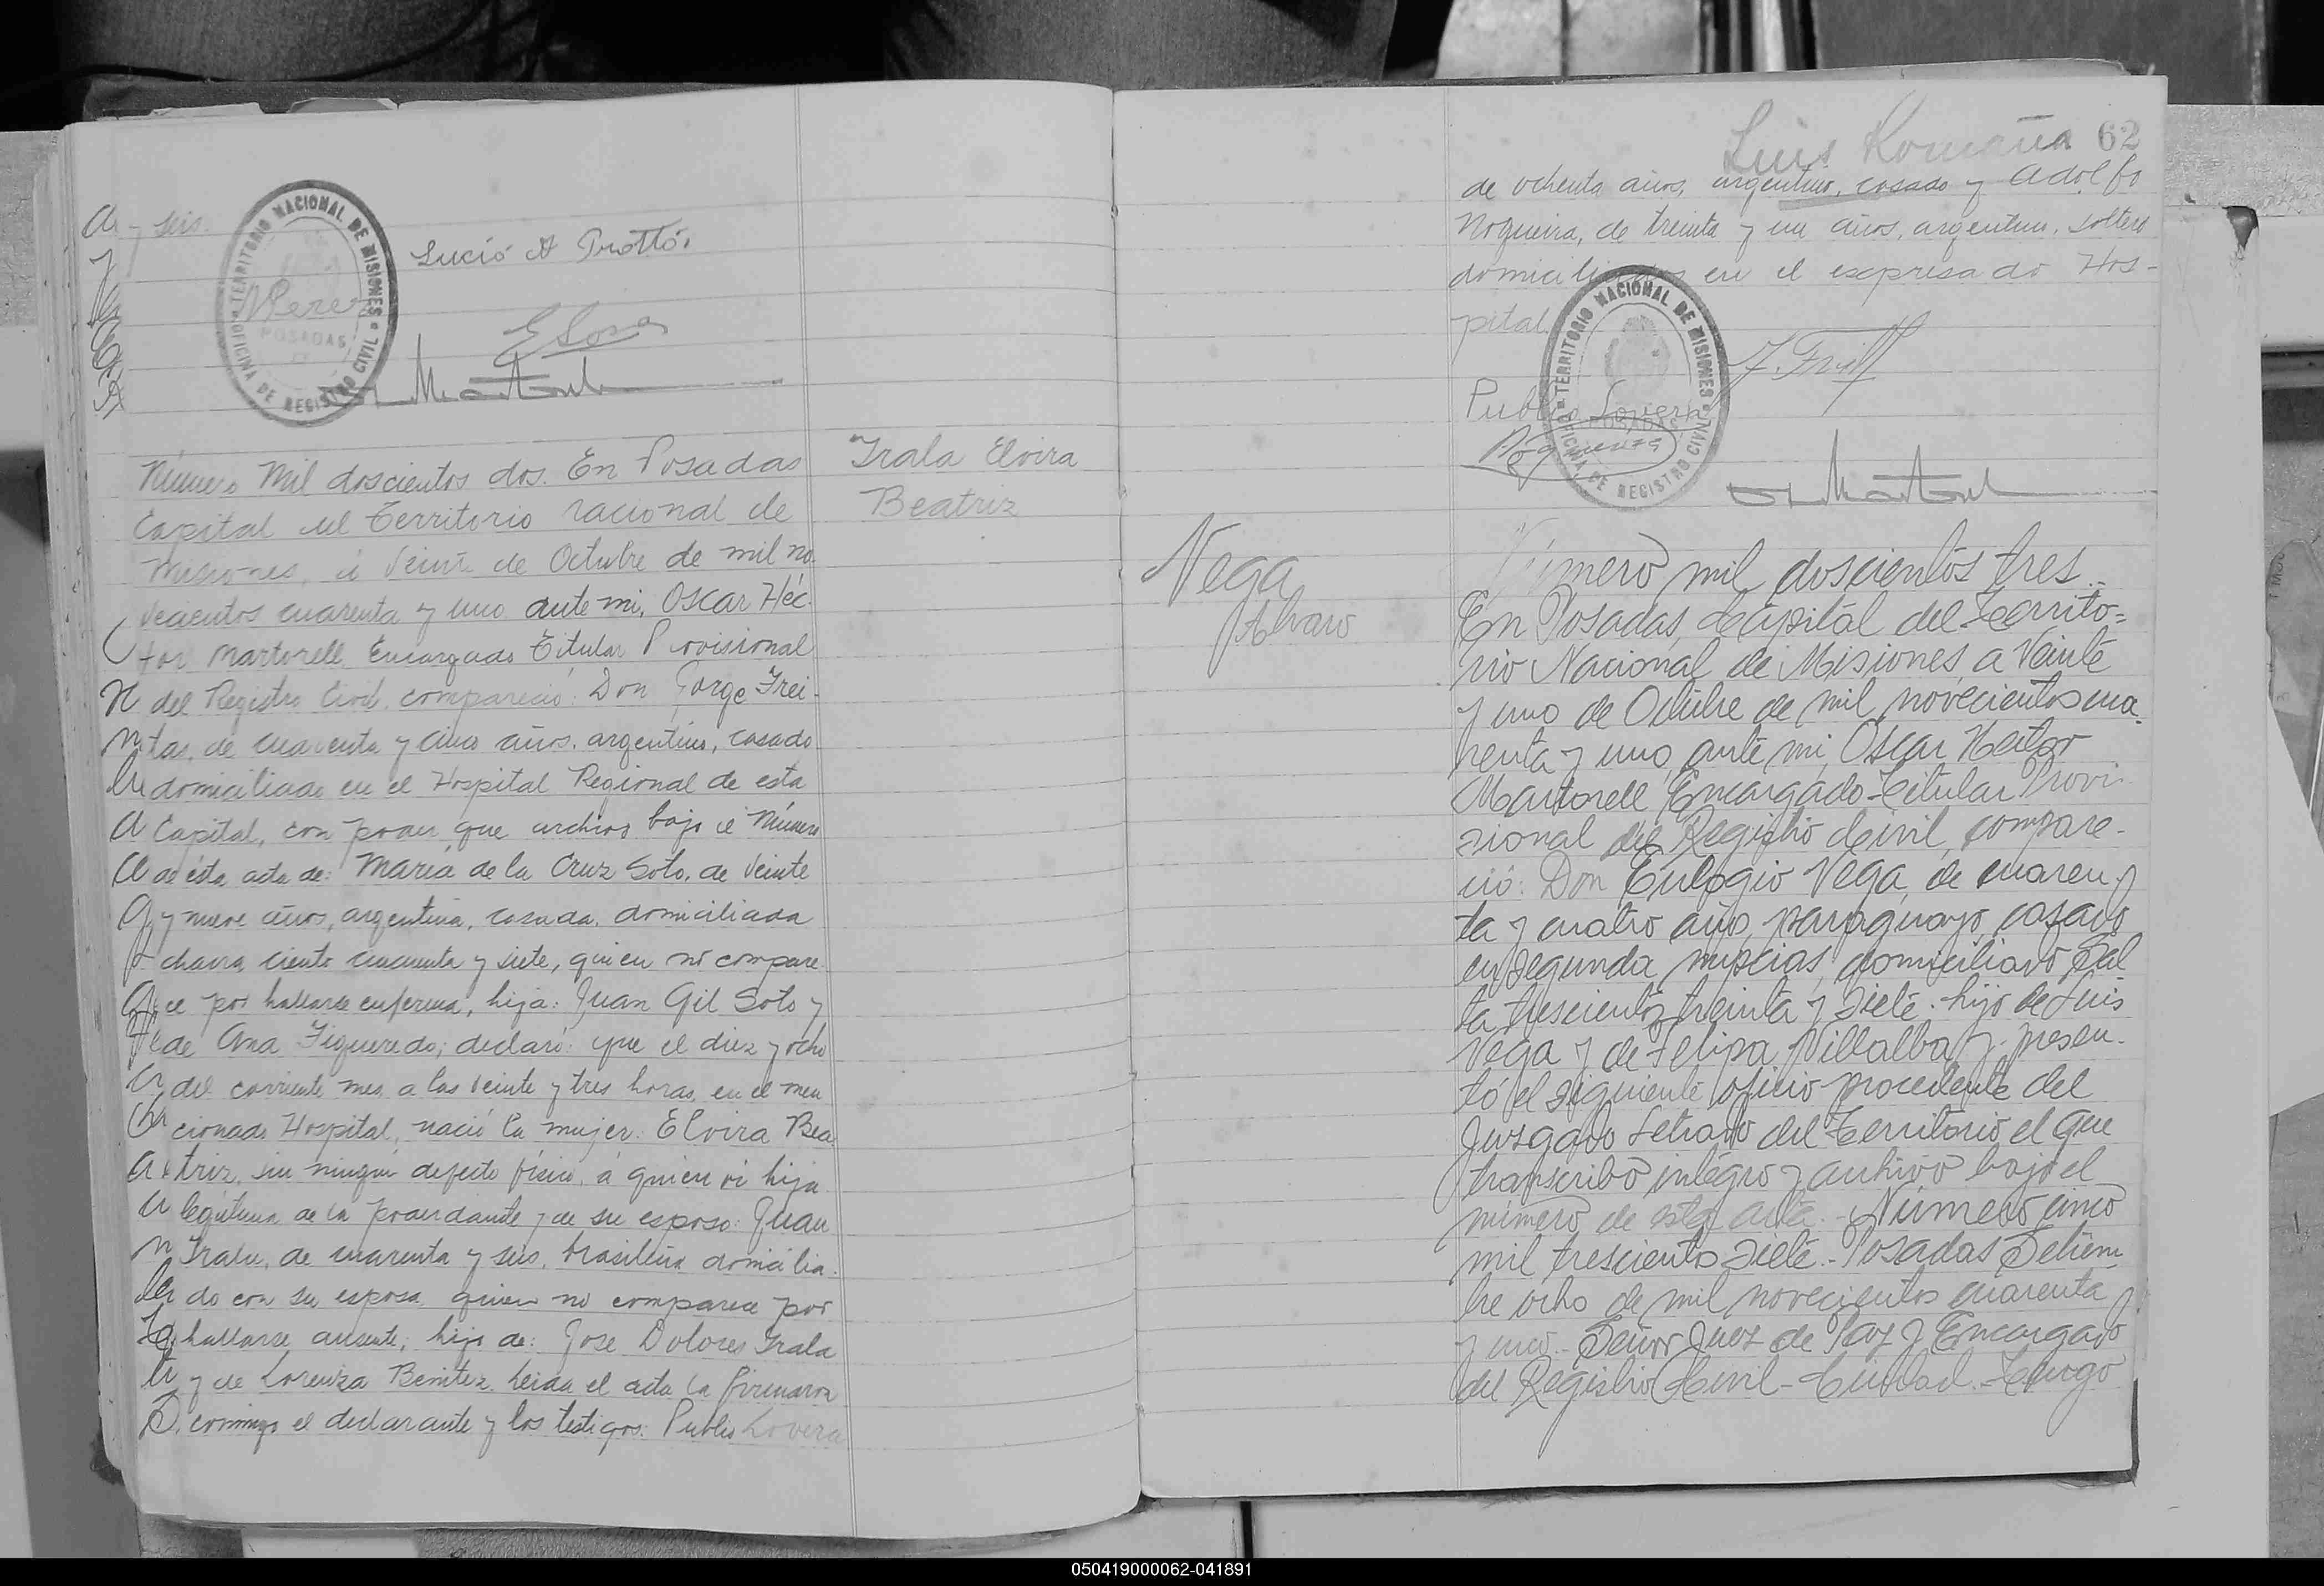 y seis.
TERRITORIO NACIONAL DE MISIONES
OFICINA DE REGISTRO CIVIL
POSADAS
Perez
Lucio A Trottó.
E Sosa
Número Mil doscientos dos. En Posadas
Capital del Territorio nacional de
Misiones, á veinte de Octubre de mil no-
vecientos cuarenta y uno ante mi, Oscar Héc-
tor Martorell Encargado Titular Provisional
del Registro Civil, compareció: Don Jorge Frei-
tas, de cuarenta y cinco años, argentino, casado
domiciliado en el Hospital Regional de esta
Capital, con poder que archivo bajo el Número
de ésta acta de: María de la Cruz Soto, de veinte
y nueve años, argentina, casada, domiciliada
chacra ciento cincuenta y siete, quien no compare
ce por hallarse enferma, hija: Juan Gil Soto y
de Ana Figueredo; declaró: que el diez y ocho
del corriente mes, a las veinte y tres horas, en el men
cionado Hospital, nació la mujer: Elvira Bea
triz, sin ningún defecto físico, á quien vi hija
legítima de la poderdante y de su esposo: Juan
Irala, de cuarenta y seis, brasileño domicilia
do con su esposa quien no comparece por
hallarse ausente; hijo de: José Dolores Irala
y de Lorenza Benitez. Leida el acta la firmaron
conmigo el declarante y los testigos: Publio Lovera
Irala Elvira
Beatriz
Luis Romaña 62
de ochenta años, argentino, casado y Adolfo
Nogueira, de treinta y un años, argentino, soltero
domiciliados en el expresado Hos-
pital.
TERRITORIO NACIONAL DE MISIONES
OFICINA DE REGISTRO CIVIL
POSADAS
Publio Lovera
Vega
Alvaro
Número mil doscientos tres.-
En Posadas, Capital del Territo=
rio Nacional de Misiones, a Veinte
y uno de Octubre de mil novecientos cua
renta y uno, ante mi, Oscar Hector
Martorell Encargado Titular Provi-
sional del Registro Civil, compare-
ció: Don Eulogio Vega, de cuaren-
ta y cuatro años, paraguayo, casado
en segunda nupcias, domiciliado Sal
ta trescientos treinta y siete. hijo de Luis
Vega y de Felipa Villalba y presen-
tó el siguiente oficio procedente del
Juzgado Letrado del Territorio, el que
transcribo integro y archivo bajo el
número de esta acta.- Número cinco
mil trescientos siete.- Posadas Setiem
bre ocho de mil novecientos cuarenta
y uno.- Señor Juez de Paz y Encargado
del Registro Civil - Ciudad.- Tengo
050419000062-041891